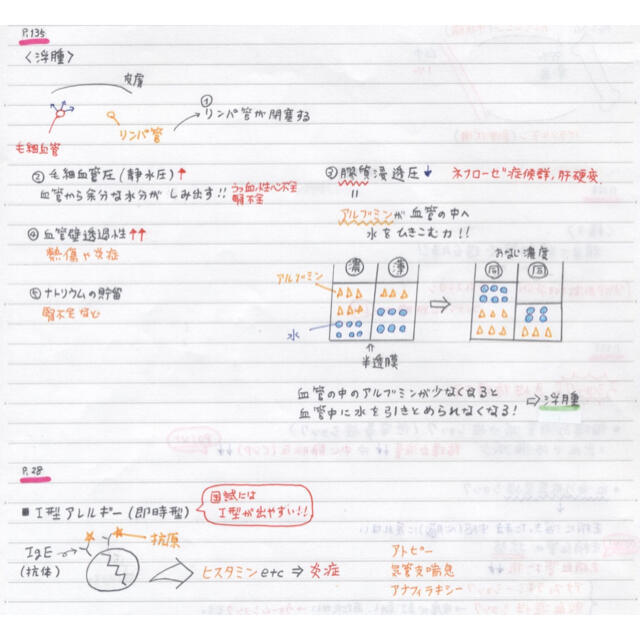 P.135
〈浮腫〉
皮膚
毛細血管
リンパ管
① リンパ管が閉塞する
② 毛細血管圧(静水圧)↑
血管から余分な水分がしみ出す!! うっ血性心不全
腎不全
③ 膠質浸透圧↓ ネフローゼ症候群,肝硬変
=
アルブミンが血管の中へ
水をひきこむ力!!
④ 血管壁透過性↑↑
熱傷や炎症
⑤ ナトリウムの貯留
腎不全など
濃 薄
おなじ濃度
同 同
アルブミン
水
半透膜
血管の中のアルブミンが少なくなると
血管中に水を引きとめられなくなる! ⇨浮腫
P.28
■ Ⅰ型アレルギー(即時型)
国試には
Ⅰ型が出やすい!!
抗原
IgE
(抗体)
ヒスタミンetc ⇒ 炎症
アトピー
気管支喘息
アナフィラキシー